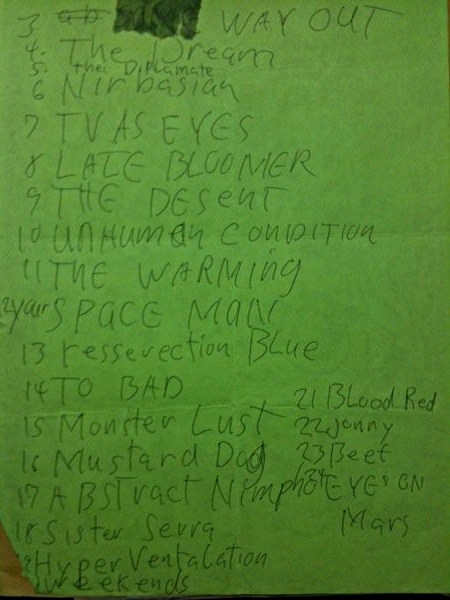 3 WAY OUT
4. The Dream
5. The Diplamate
6 Nirbasian
7 TV AS EYES
8 LATE BLOOMER
9 THE DESENT
10 UNHUMAN CONDITION
11 THE WARMING
12 your SPACE MAN
13 resserection BLUE
14 TO BAD
15 Monster Lust
16 Mustard Dog
17 ABSTract Nimpho
18 Sister Serra
19 Hyper Ventalation
weekends
21 BLood Red
22 Jenny
23 Beef
24 EYES ON
Mars